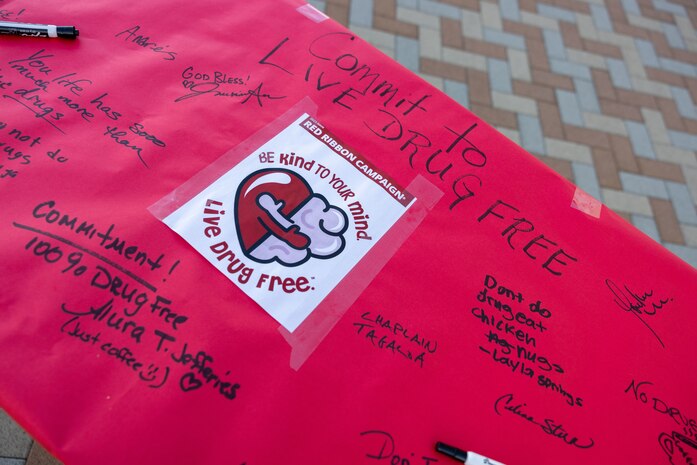 Andre's
GOD BLESS!
You life has sooo
much more than
drugs
not do
Commitment!
100% Drug Free
Alura T. Jefferies
(Just coffee :))
RED RIBBON CAMPAIGN
BE Kind TO YOUR mind.
Live Drug Free.
Commit to
LIVE DRUG FREE
CHAPLAIN
TAGALOA
Dont do
drug eat
chicken
nugs
-Layla Springs
NO DRUGS